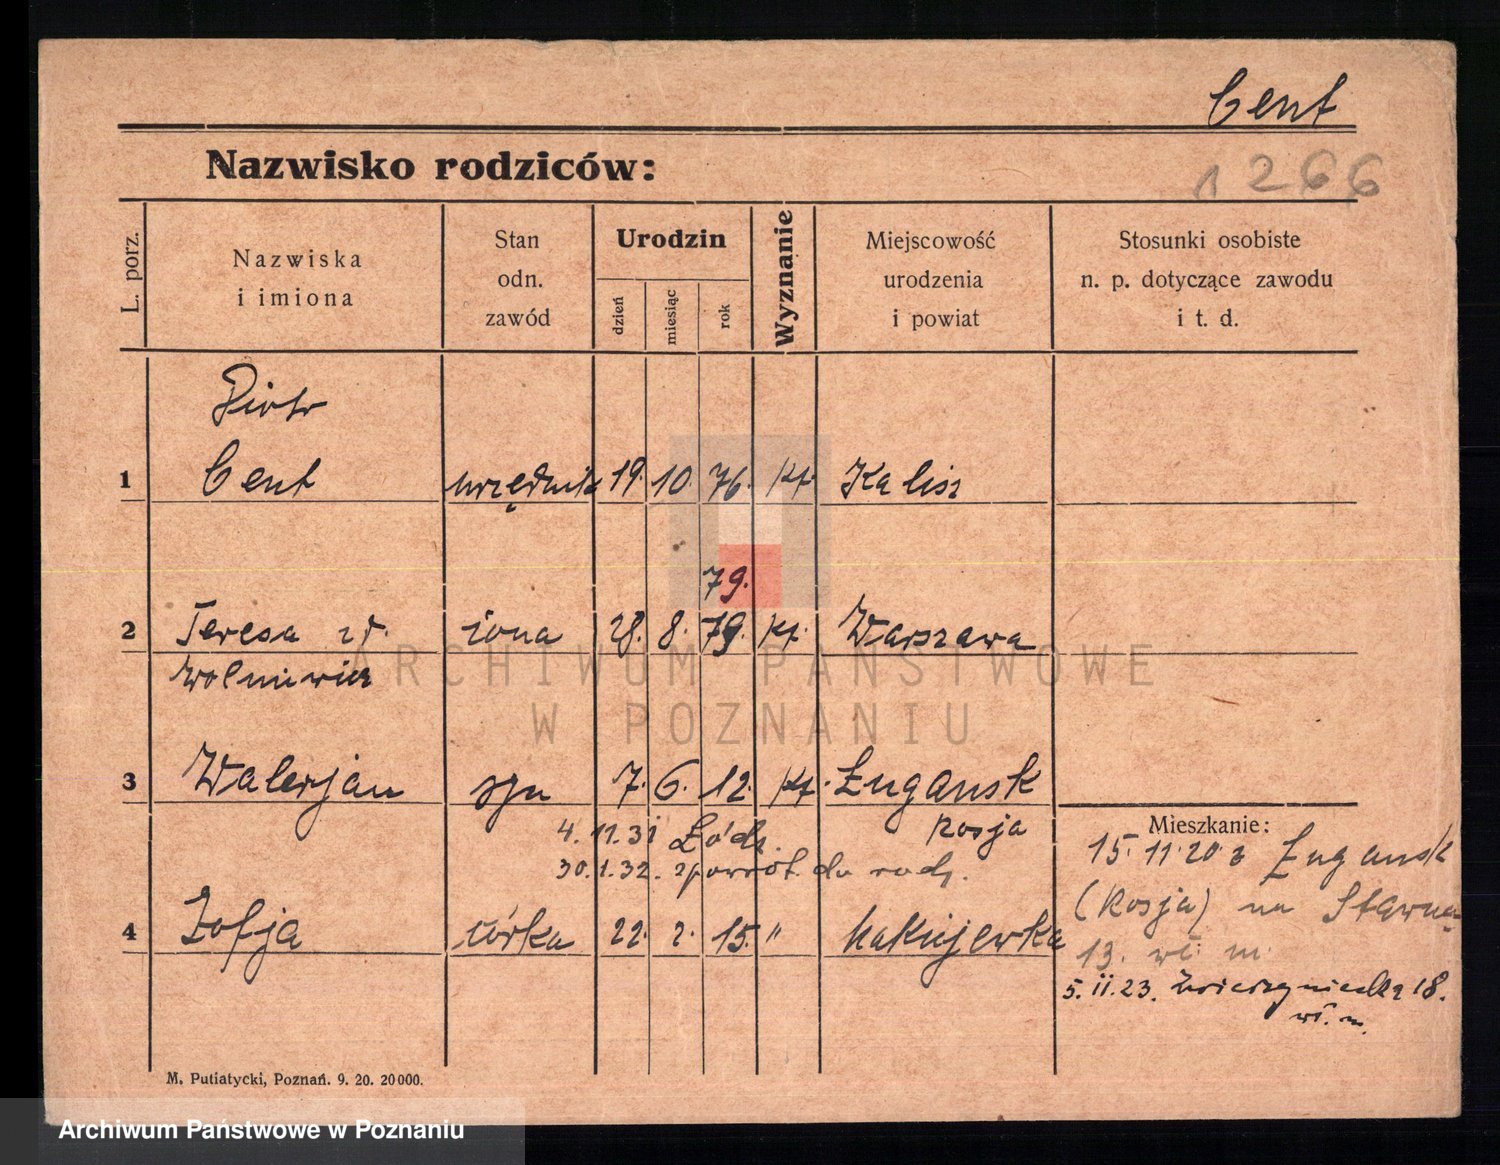 Cent
Nazwisko rodziców:
1266
L. porz.
Nazwiska
i imiona
Stan
odn.
zawód
Urodzin
dzień
miesiąc
rok
Wyznanie
Miejscowość
urodzenia
i powiat
Stosunki osobiste
n. p. dotyczące zawodu
i t. d.
Piotr
1 Cent urzędnik 19. 10. 76. kt. Kalisz
79.
2 Teresa żona 28. 8. 79. kt. Warszawa
ARCHIWUM PAŃSTWOWE
W POZNANIU
3 Walerjan syn 7. 6. 12. kt. Ługansk
Rosja
4. 11. 31 Łódź.
30. 1. 32. zpowrót do rodz.
4 Zofja córka 22. 2. 15. " Makiejewka
Mieszkanie:
15. 11. 20 z Ługansk
(Rosja) na Stawną
13. wł. m.
5. II. 23. Zwierzyniecka 18.
wł. m.
M. Putiatycki, Poznań. 9. 20. 20000.
Archiwum Państwowe w Poznaniu